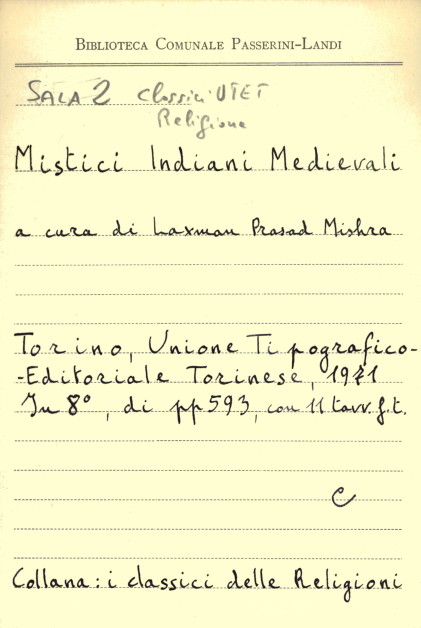 BIBLIOTECA COMUNALE PASSERINI-LANDI
SALA 2 Classici UTET
Religione
Mistici Indiani Medievali
a cura di Laxman Prasad Mishra
Torino, Unione Tipografico-
-Editoriale Torinese, 1971
In 8°, di pp 593, con 11 tavv. f.t.
C
Collana: i classici delle Religioni